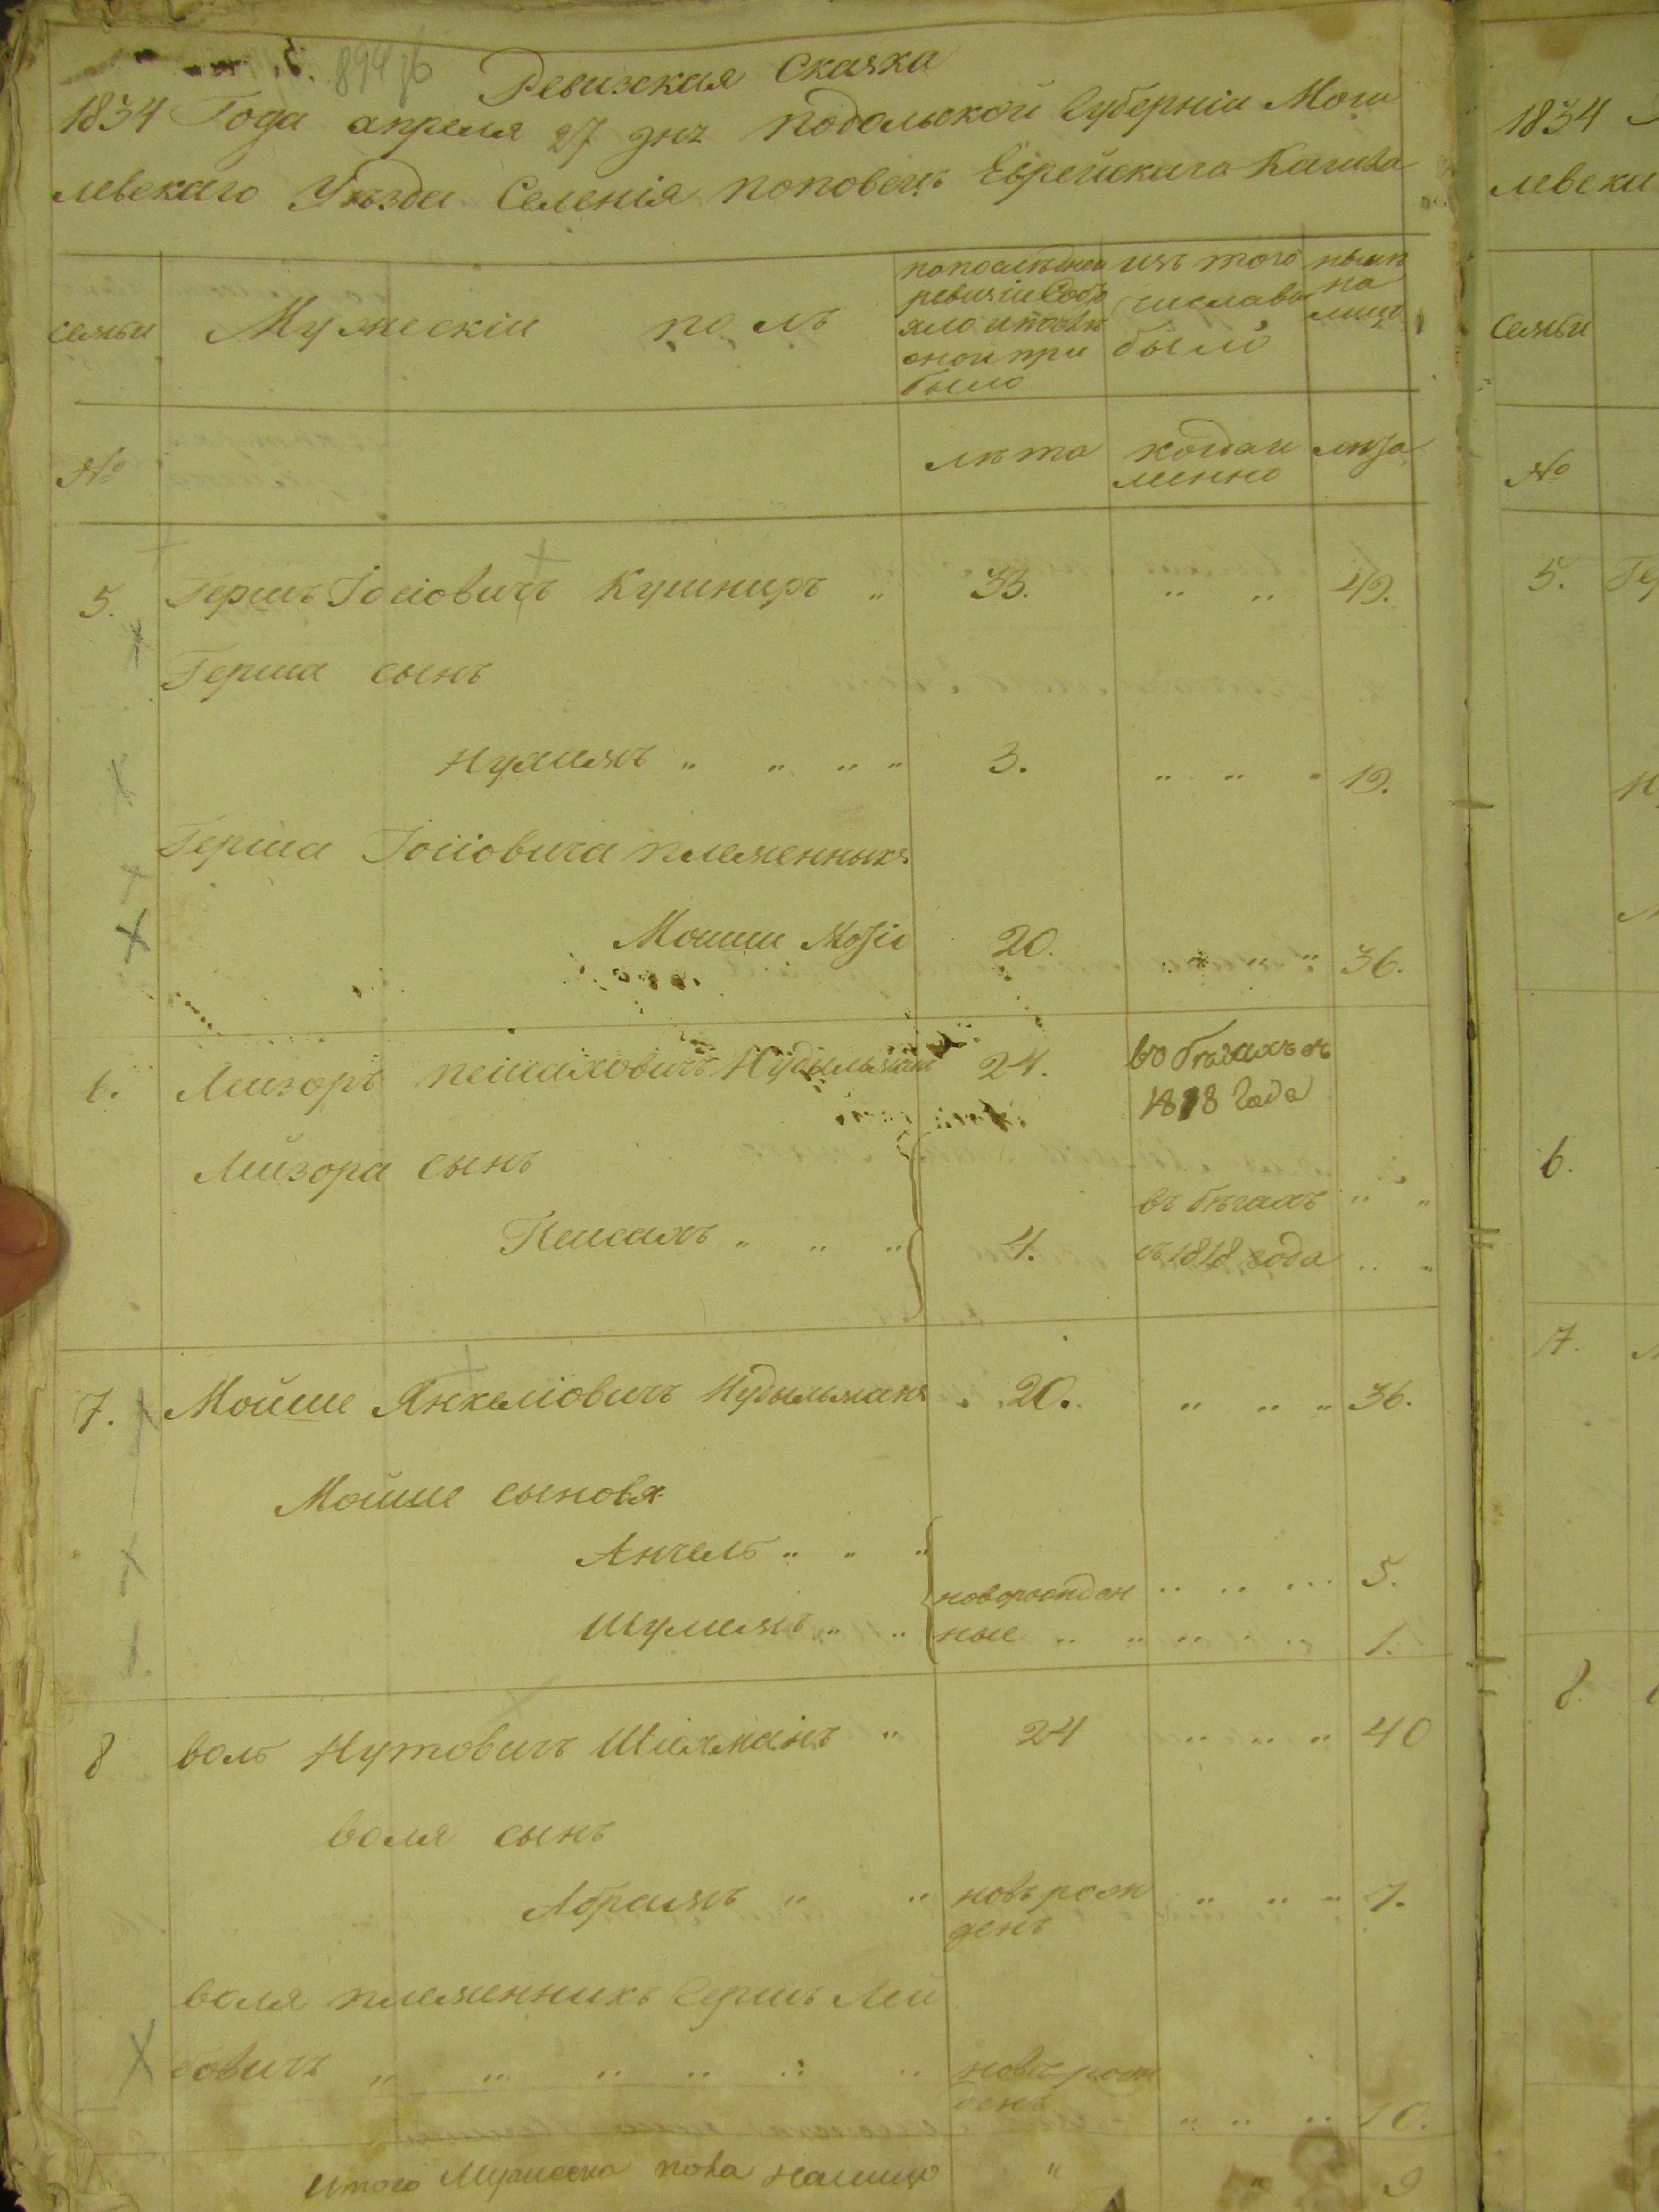 894 зв
Ревизская Сказка
1834 Года апреля 27 дня подольской Губерніи Моги
левскаго Уезда Селенія поповецъ Еврейскаго Кагила
семьи Мужескій полъ по последней ревизіи Состояло и после оной прибыло изъ того числа выбыло ныне на лицо
№ лета когда именно лета
5. Гершъ Іосіовичъ Кушниръ „ 33. „ „ 49.
Герша сынъ
Нухимъ „ „ „ „ 3. „ „ „ 19.
Герша Іосіовича племенникъ
Мошии 20. „ „ „ 36.
6. Лейзоръ пейсаховичъ Нудыльманъ 24. во бегахъ съ
1818 Года
Лейзора сынъ
въ бегахъ „ „
Пейсахъ „ „ „ 4. съ 1818 года „ „
7. Мойше Янкеліовичъ Нудыльманъ 20. „ „ „ 36.
Мойше сыновя
Анчель „ „ „
новорожден „ „ „ 5.
Шулимъ „ „ ные „ „ „ „ „ 1.
8 воль Нутовичъ Шіяманъ „ 24 „ „ „ 40
воля сынъ
Абрамъ „ „ новърож „ „ „ 7.
денъ
воля племенникъ Гершъ Лей
бовичъ „ „ „ „ „ „ новърож
денъ „ „ „ 10.
Итого Мужеска пола налицо „ „ 9
1834
левски
семьи
№
5. Ге
6.
7.
8.